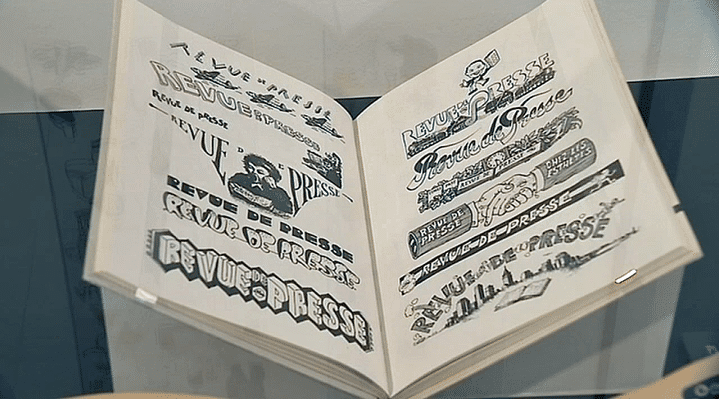 REVUE DE PRESSE
REVUE DE PRESSE
REVUE DE PRESSE
REVUE DE PRESSE
REVUE DE PRESSE
REVUE DE PRESSE
REVUE DE PRESSE
REVUE DE PRESSE
Revue de Presse
REVUE DE PRESSE
REVUE DE
PRESSE
REVUE-DE-PRESSE
REVUE DE PRESSE